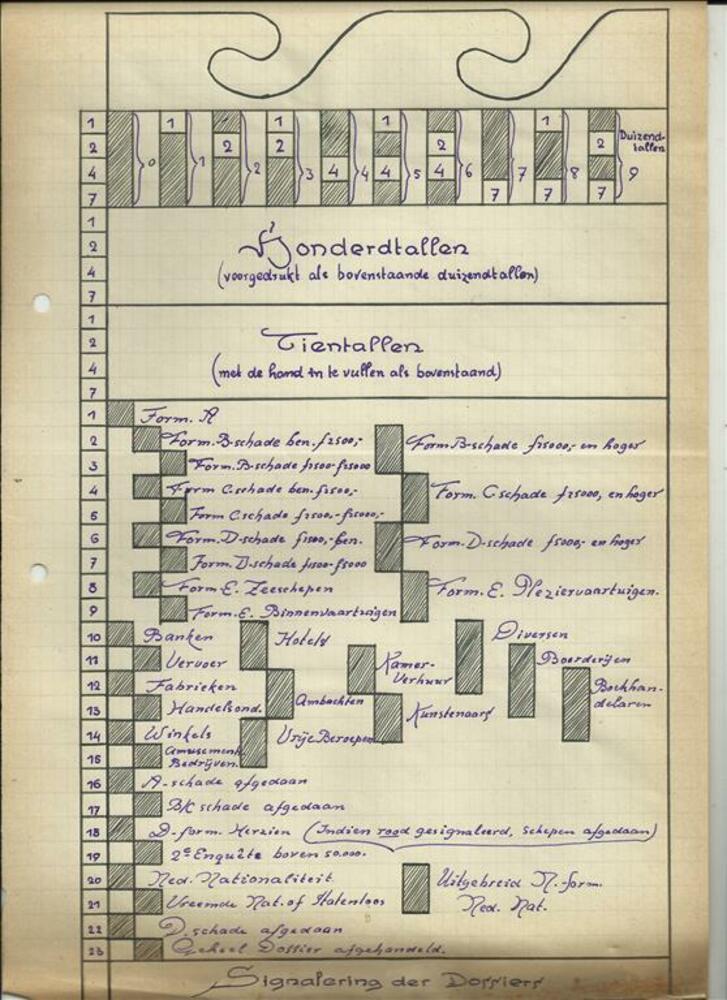 1 1 1 1 1
2 2 2 2 2 Duizend-
0 1 2 3 4 5 6 7 8 tallen 9
4 4 4 4
7 7 7 7
1
2 Honderdtallen
4 (voorgedrukt als bovenstaande duizendtallen)
7
1
2 Tientallen
4 (met de hand in te vullen als bovenstaand)
7
1 Form. A
2 Form. B-schade ben. f2500,- Form B-schade f25000,- en hoger
3 Form. B-schade f2500-f25000
4 Form C.schade ben. f2500,- Form. C schade f25000, en hoger
5 Form C.schade f2500,- f25000,-
6 Form. D-schade f1500,- ben. Form. D-schade f5000,- en hoger
7 Form. D-schade f1500-f5000
8 Form-E. Zeeschepen Form. E. Pleziervaartuigen.
9 Form. E. Binnenvaartuigen
10 Banken Hotels Diversen
11 Vervoer Kamer- Verhuur Boerderijen
12 Fabrieken Ambachten Boekhan- delaren
13 Handelsond. Kunstenaars
14 Winkels Vrije Beroepen
15 Amusement. Bedrijven.
16 A-schade afgedaan
17 B/C schade afgedaan
18 D-form. Herzien (Indien rood gesignaleerd, schepen afgedaan)
19 2e Enquête boven 50.000.
20 Ned. Nationaliteit Uitgebreid N.-form.
21 Vreemde Nat. of Statenloos Ned. Nat.
22 D. schade afgedaan
23 Geheel Dossier afgehandeld.
Signalering der Dossiers